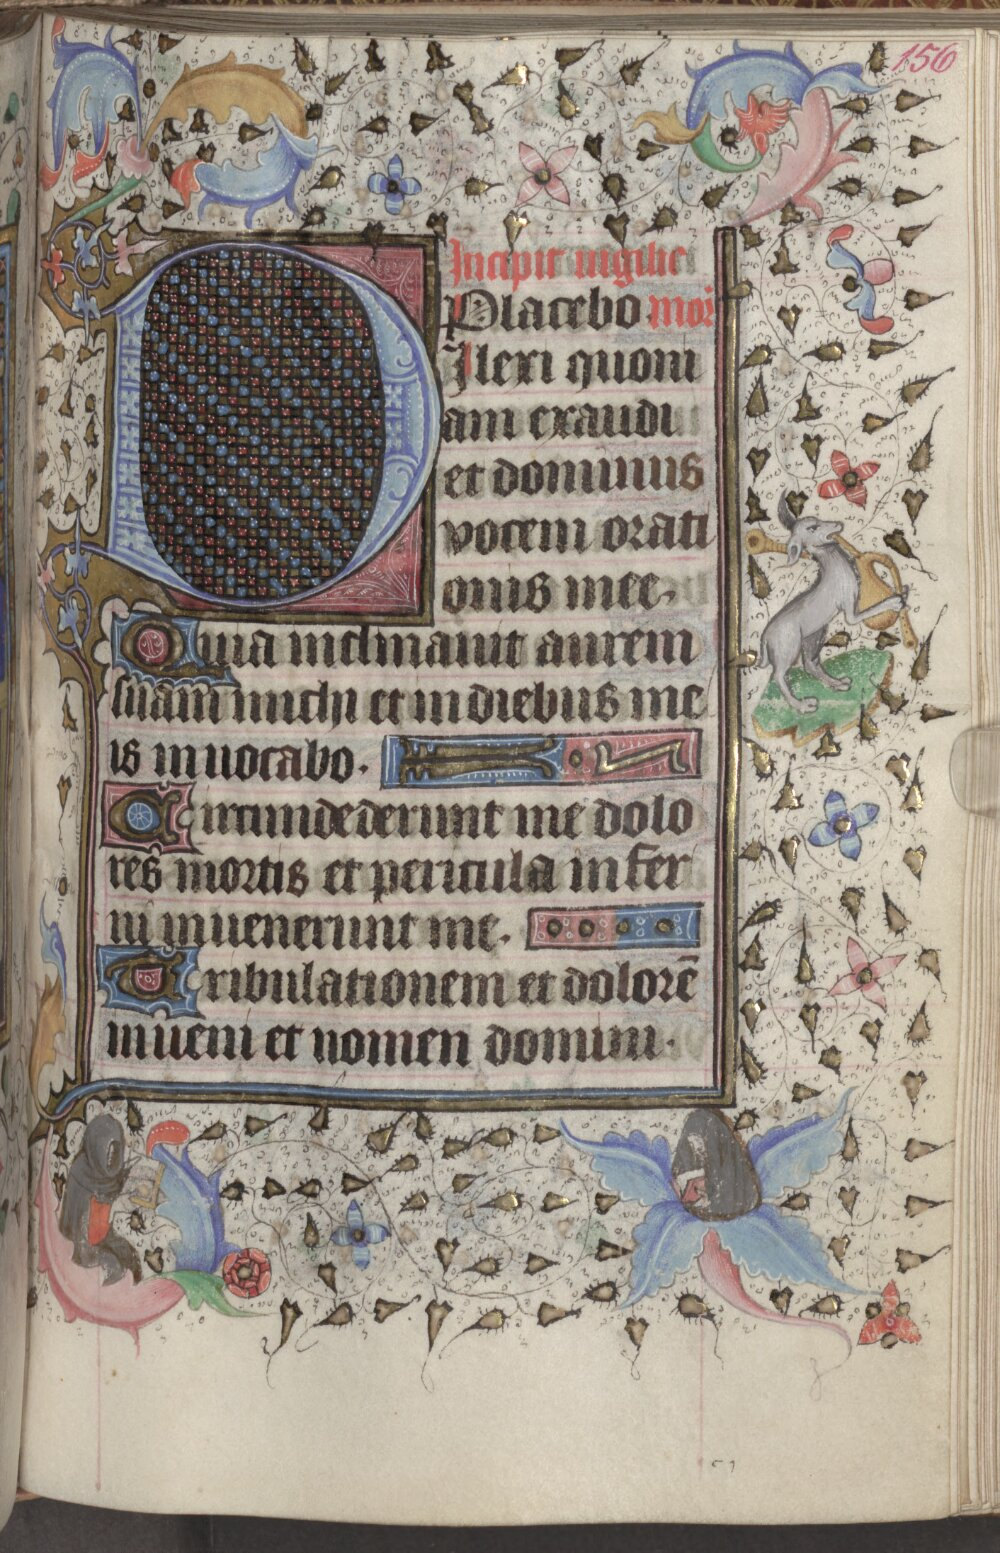 156
Incipit uigilie
Placebo mor
Dilexi quoni
am exaudi
et dominus
vocem orati
onis mee.
Quia inclinauit aurem
suam michi et in diebus me
is inuocabo.
Circumdederunt me dolo
res mortis et pericula infer
ni inuenerunt me.
Tribulationem et dolorē
inueni et nomen domini.